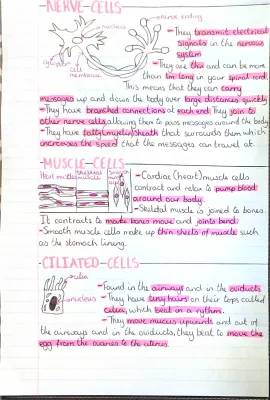 -NERVE-CELLS
nucleus
nerve ending
cytoplasm
cell
membrane
-They transmit electrical
signals in the nervous
system
-They are thin and can be more
than 1m long in your spinal cord.
This means that they can carry
messages up and down the body over large distances quickly
-They have branched connections at each end. They join to
other nerve cells, allowing them to pass messages around the body.
-They have fatty(myelin)Sheath that surrounds them which
increases the speed that the messages can travel at.
-MUSCLE-CELLS
Heart muscle
Skeletal
muscle
Smooth
-Cardiac (heart) muscle cells
contract and relax to pump blood
around our body.
-Skeletal muscle is joined to bones.
It contracts to make bones move and joints bend.
-Smooth muscle cells make up thin sheets of muscle such
as the stomach lining.
-CILIATED-CELLS
cilia
nucleus
-Found in the airways and in the oviducts
-They have tiny hairs on their tops called
cilia, which beat in a rhythm.
-They move mucus upwards and out of
the airways and in the oviducts, they beat to move the
egg from the ovaries to the uterus.